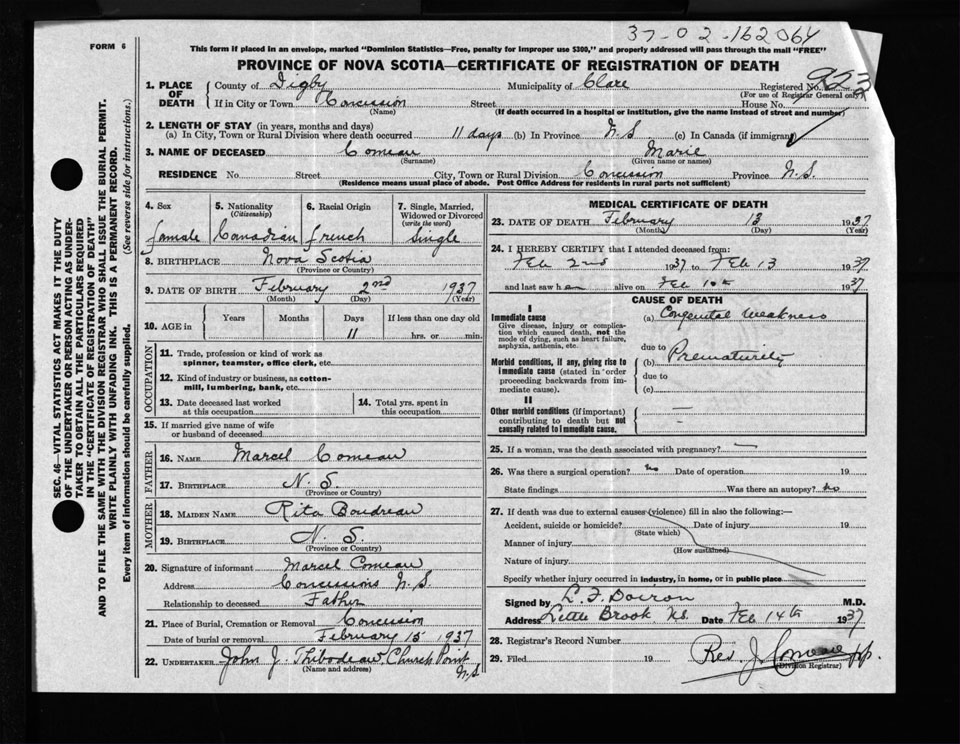 37-02-162064
FORM 6
This form if placed in an envelope, marked "Dominion Statistics—Free, penalty for improper use $300," and properly addressed will pass through the mail "FREE"
PROVINCE OF NOVA SCOTIA—CERTIFICATE OF REGISTRATION OF DEATH
SEC. 46—VITAL STATISTICS ACT MAKES IT THE DUTY
OF THE UNDERTAKER OR PERSON ACTING AS UNDER-
TAKER TO OBTAIN ALL THE PARTICULARS REQUIRED
IN THE "CERTIFICATE OF REGISTRATION OF DEATH"
AND TO FILE THE SAME WITH THE DIVISION REGISTRAR WHO SHALL ISSUE THE BURIAL PERMIT.
WRITE PLAINLY WITH UNFADING INK. THIS IS A PERMANENT RECORD.
Every item of Information should be carefully supplied. (See reverse side for instructions.)
1. PLACE OF DEATH County of Digby Municipality of Clare Registered No. 923
(For use of Registrar General only)
If in City or Town Concession Street House No.
(Name) (If death occurred in a hospital or institution, give the name instead of street and number)
2. LENGTH OF STAY (in years, months and days)
(a) In City, Town or Rural Division where death occurred 11 days (b) In Province N.S. (c) In Canada (if immigrant)
3. NAME OF DECEASED Comeau Marie
(Surname) (Given name or names)
RESIDENCE No. Street City, Town or Rural Division Concession Province N.S.
(Residence means usual place of abode. Post Office Address for residents in rural parts not sufficient)
4. Sex 5. Nationality (Citizenship) 6. Racial Origin 7. Single, Married, Widowed or Divorced (write the word)
female Canadian french Single
8. BIRTHPLACE Nova Scotia
(Province or Country)
9. DATE OF BIRTH February 2nd 1937
(Month) (Day) (Year)
10. AGE in Years Months Days If less than one day old
11 hrs. or min.
OCCUPATION
11. Trade, profession or kind of work as
spinner, teamster, office clerk, etc.
12. Kind of industry or business, as cotton-
mill, lumbering, bank, etc.
13. Date deceased last worked
at this occupation
14. Total yrs. spent in
this occupation
15. If married give name of wife
or husband of deceased
FATHER
16. NAME Marcel Comeau
17. BIRTHPLACE N. S.
(Province or Country)
MOTHER
18. MAIDEN NAME Rita Boudreau
19. BIRTHPLACE N. S.
(Province or Country)
20. Signature of informant Marcel Comeau
Address Concessions N.S.
Relationship to deceased Father
21. Place of Burial, Cremation or Removal Concession
Date of burial or removal February 15 1937
22. UNDERTAKER John J. Thibodeau Church Point
N.S
(Name and address)
MEDICAL CERTIFICATE OF DEATH
23. DATE OF DEATH February 13 1937
(Month) (Day) (Year)
24. I HEREBY CERTIFY that I attended deceased from:
Feb 2nd 1937 to Feb 13 1937
and last saw her alive on Feb 10th 1937
CAUSE OF DEATH
I
Immediate cause
Give disease, injury or complica-
tion which caused death, not the
mode of dying, such as heart failure,
asphyxia, asthenia, etc.
(a) Congenital Weakness
due to
Morbid conditions, if any, giving rise to
immediate cause (stated in order
proceeding backwards from im-
mediate cause).
(b) Prematurity
due to
(c)
II
Other morbid conditions (if important)
contributing to death but not
causally related to immediate cause.
25. If a woman, was the death associated with pregnancy? —
26. Was there a surgical operation? no Date of operation 19
State findings Was there an autopsy? no
27. If death was due to external causes (violence) fill in also the following:—
Accident, suicide or homicide? Date of injury 19
(State which)
Manner of injury
(How sustained)
Nature of injury
Specify whether injury occurred in industry, in home, or in public place
Signed by L. F. Doiron M.D.
Address Little Brook N.S. Date Feb 14th 1937
28. Registrar's Record Number
29. Filed 19 Rev. J. Comeau pp.
(Division Registrar)